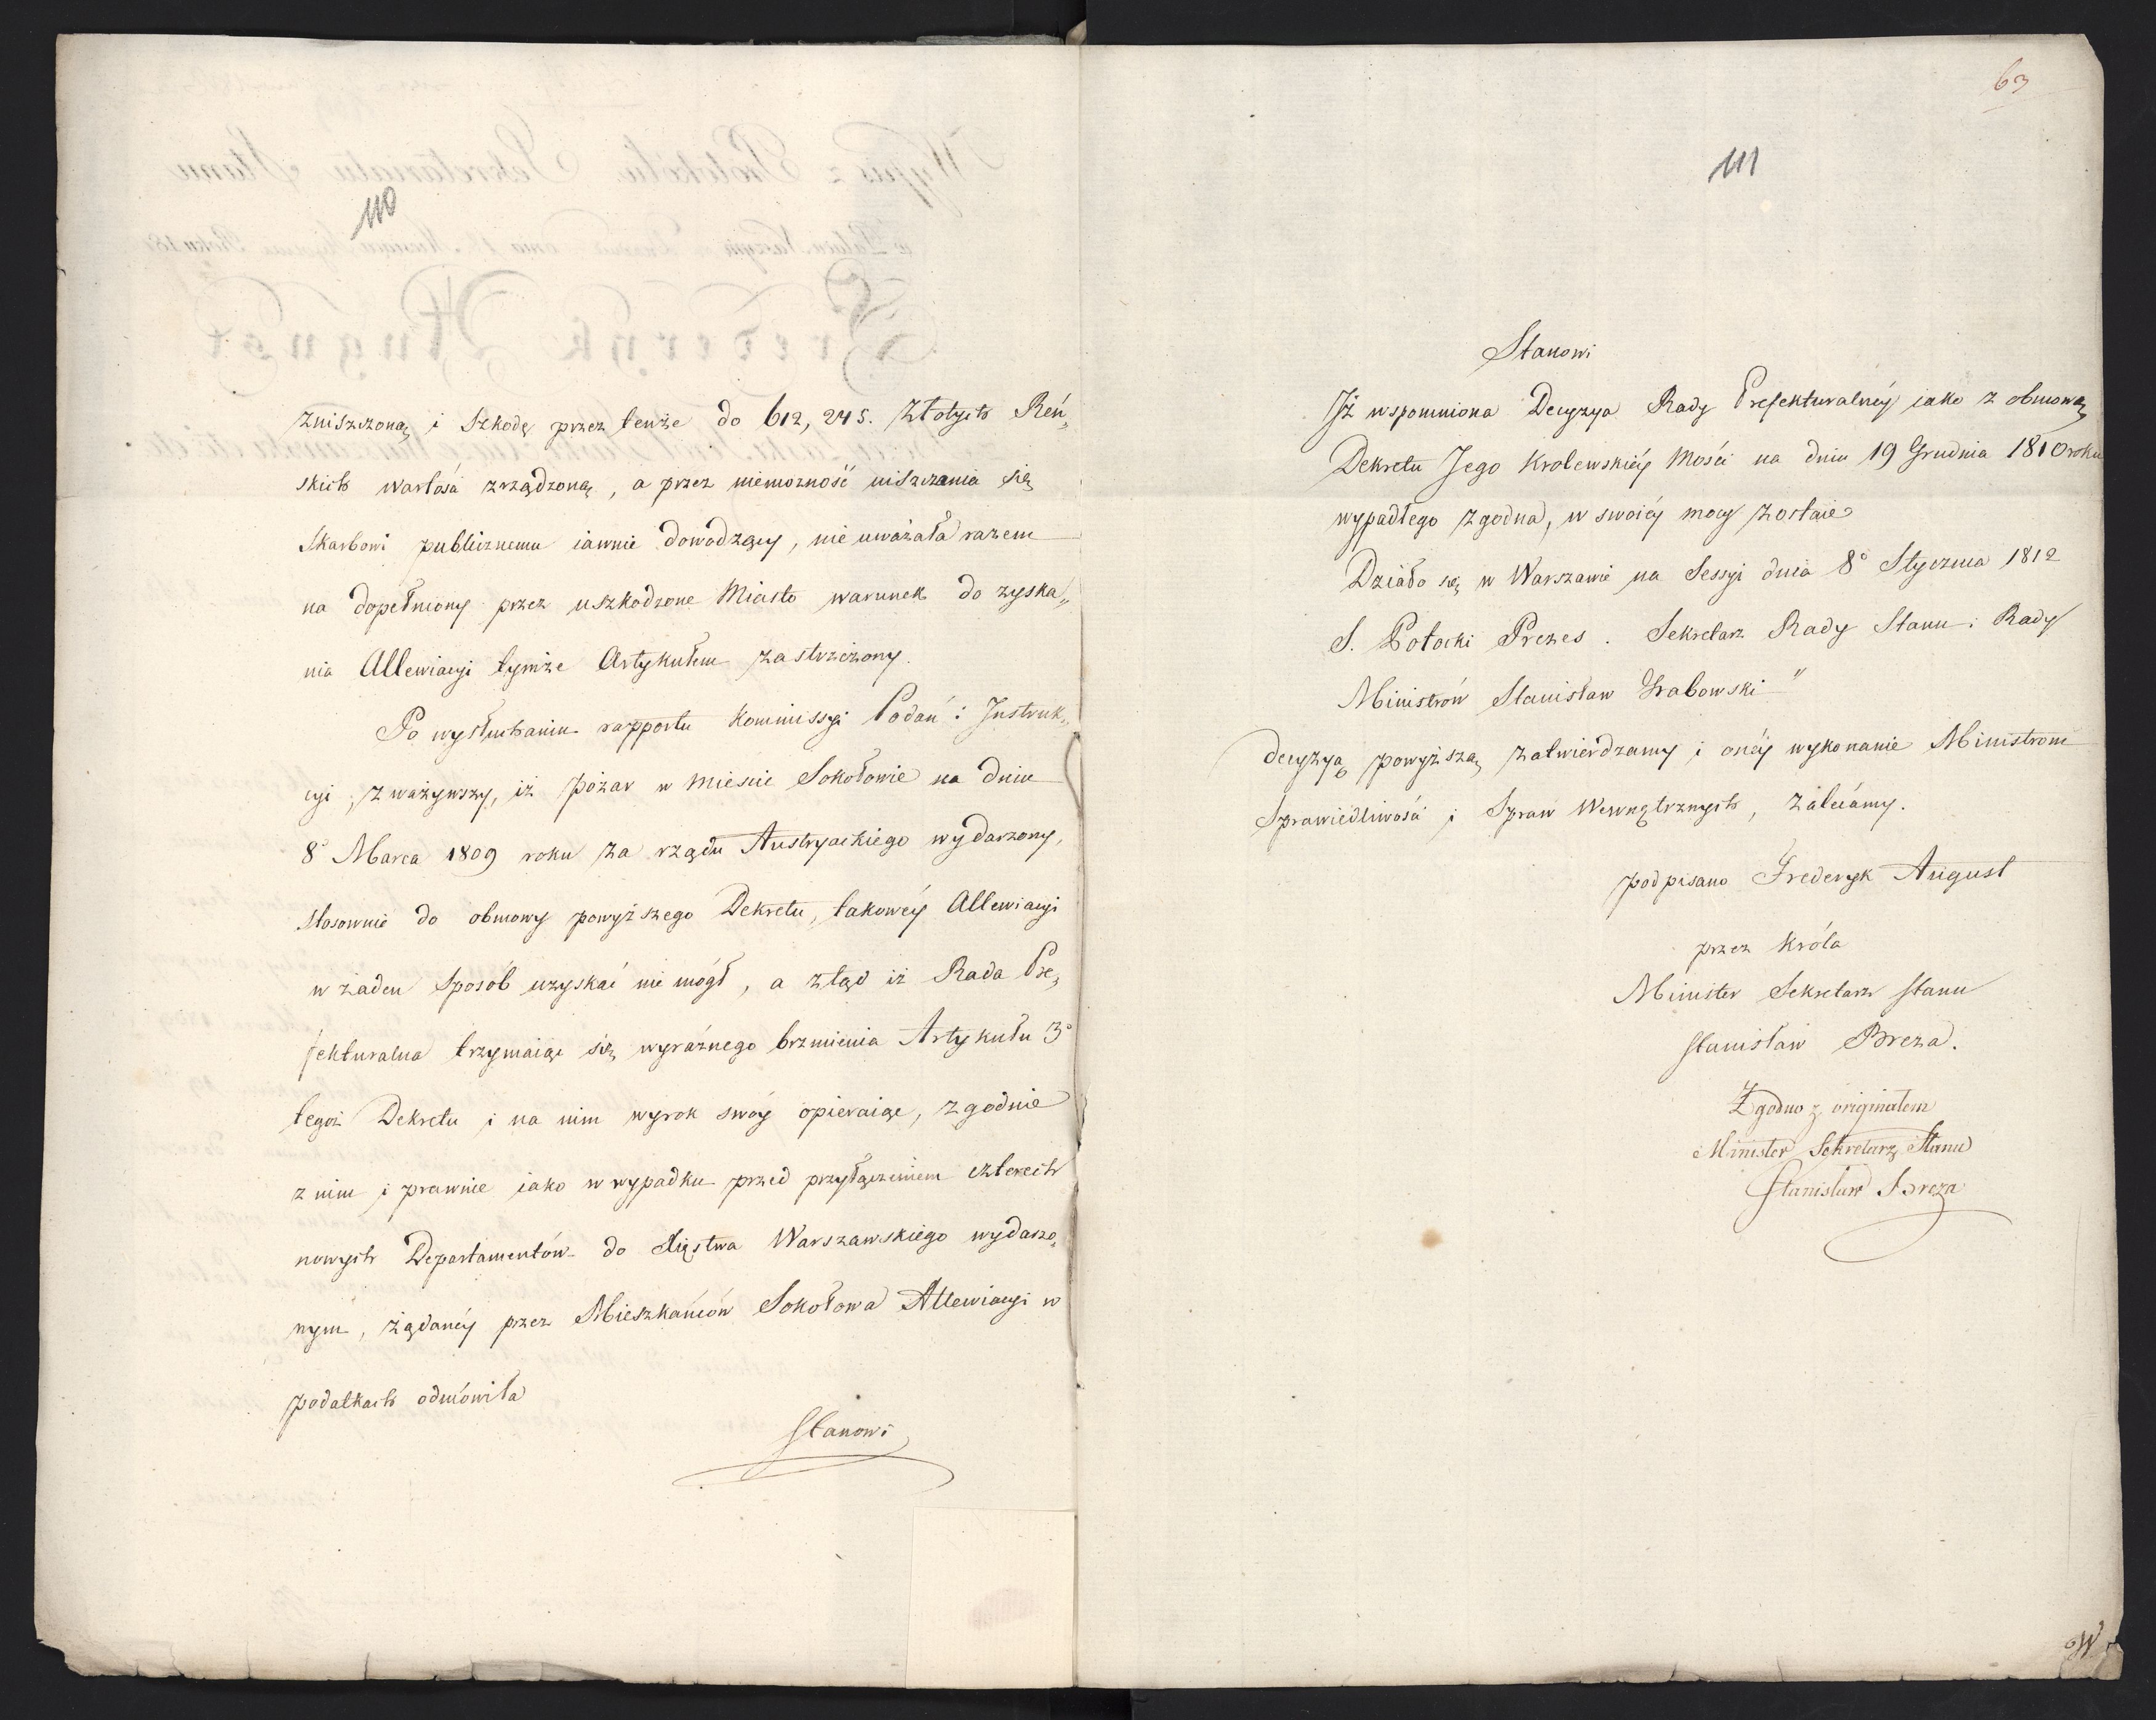 110
zniszczoną i szkodę przez tenże do 612,245. Złotych Reń„
skich wartości zrządzoną, a przez niemożność uiszczania się
skarbowi publicznemu iawnie dowodzący, nie uważała razem
na dopełniony przez uszkodzone Miasto warunek do zyska„
nia Allewiacyi tymże Artykułem zastrzeżony.
Po wysłuchaniu rapportu Kommissyi Podań i Instruk„
cyi, zważywszy, iż pożar w mieście Sokołowie na dniu
8° Marca 1809 roku za rządu Austryackiego wydarzony,
stosownie do obmowy powyższego Dekretu, takowéy Allewiacyi
w żaden sposób uzyskać nie mógł, a ztąd iż Rada Pre„
fekturalna trzymaiąc się wyraźnego brzmienia Artykułu 3°
tegoż Dekretu i na nim wyrok swóy opieraiąc, zgodnie
z nim i prawnie iako w wypadku przed przyłączeniem czterech
nowych Departamentów do Xięstwa Warszawskiego wydarzo„
nym, żądanéy przez Mieszkańców Sokołowa Allewiacyi w
podatkach odmówiła
Stanowi
63
111
Stanowi
Iż wspomniona Decyzya Rady Prefekturalnéy iako z obmową
Dekretu Jego Krolewskiéy Mości na dniu 19 Grudnia 1810 roku
wypadłego zgodna, w swoiéy mocy zostaie
Działo się w Warszawie na Sessyi dnia 8° Stycznia 1812
S. Potocki Prezes. Sekretarz Rady Stanu i Rady
Ministrów Stanisław Grabowski"
decyzyą powyższą zatwierdzamy i onéy wykonanie Ministrom
Sprawiedliwości i Spraw Wewnętrznych, zalecamy.
podpisano Frederyk August
przez Króla
Minister Sekretarz Stanu
Stanisław Breza.
Zgodno z originałem
Minister Sekretarz Stanu
Stanisław Breza
W